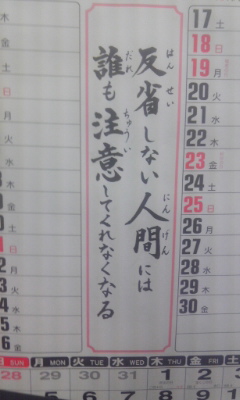 反省しない人間には
はんせい
にんげん
誰も注意してくれなくなる
だれ
ちゅうい
17 土
18 日
19 月
20 火
21 水
22 木
23 金
24 土
25 日
26 月
27 火
28 水
29 木
30 金
金
土
日
月
火
水
木
金
土
日
月
火
水
木
金
土
SUN 月 MON 火 TUE 水 WED 木 THU 金 FRI 土
28 29 30 31 1 2